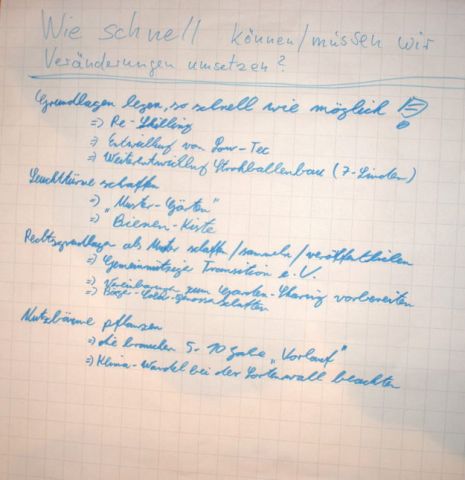 Wie schnell können/müssen wir
Veränderungen umsetzen?
Grundlagen legen, so schnell wie möglich !
=> Re-Skilling
=> Entwicklung von Low-Tec
=> Weiterentwicklung Strohballenbau (7-Linden)
Leuchttürme schaffen
=> "Muster-Gärten"
=> Bienen-Kiste
Rechtsgrundlagen als Muster schaffen/sammeln/veröffentlichen
=> Gemeinnütziger Transition e.V.
=> zum Garten-Sharing vorbereiten
=>
Nutzbäume pflanzen
=> die brauchen 5-10 Jahre "Vorlauf"
=> Klima-Wandel bei der Sortenwahl beachten